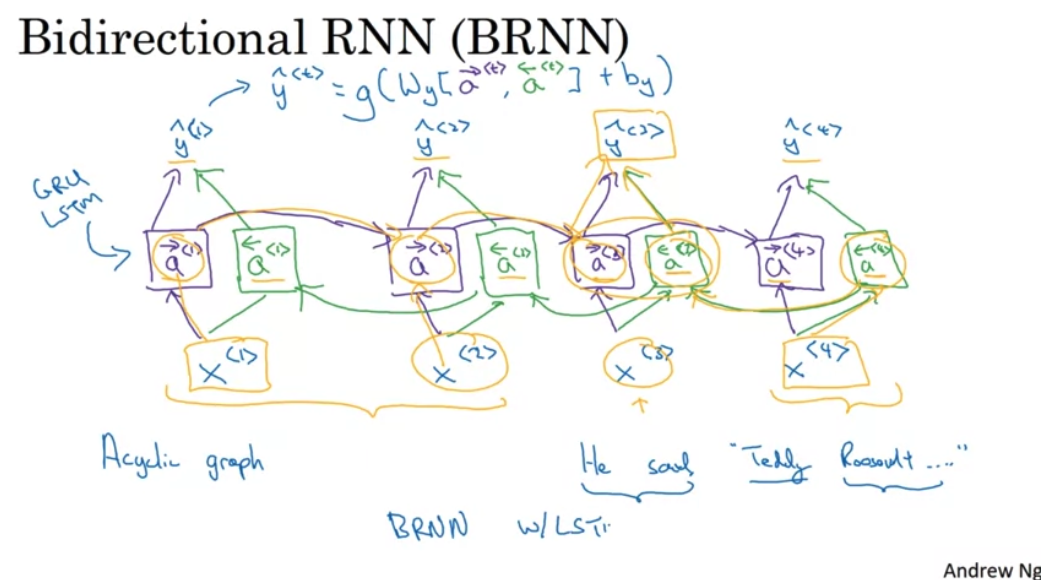 Bidirectional RNN (BRNN)
ŷ<t> = g(Wy[a→<t>, a←<t>] + by)
ŷ<1> ŷ<2> ŷ<3> ŷ<4>
GRU
LSTM
a→<1> a←<1> a→<2> a←<2> a→<3> a←<3> a→<4> a←<4>
x<1> x<2> x<3> x<4>
Acyclic graph
He said "Teddy Roosevelt ...."
BRNN w/LST
Andrew Ng